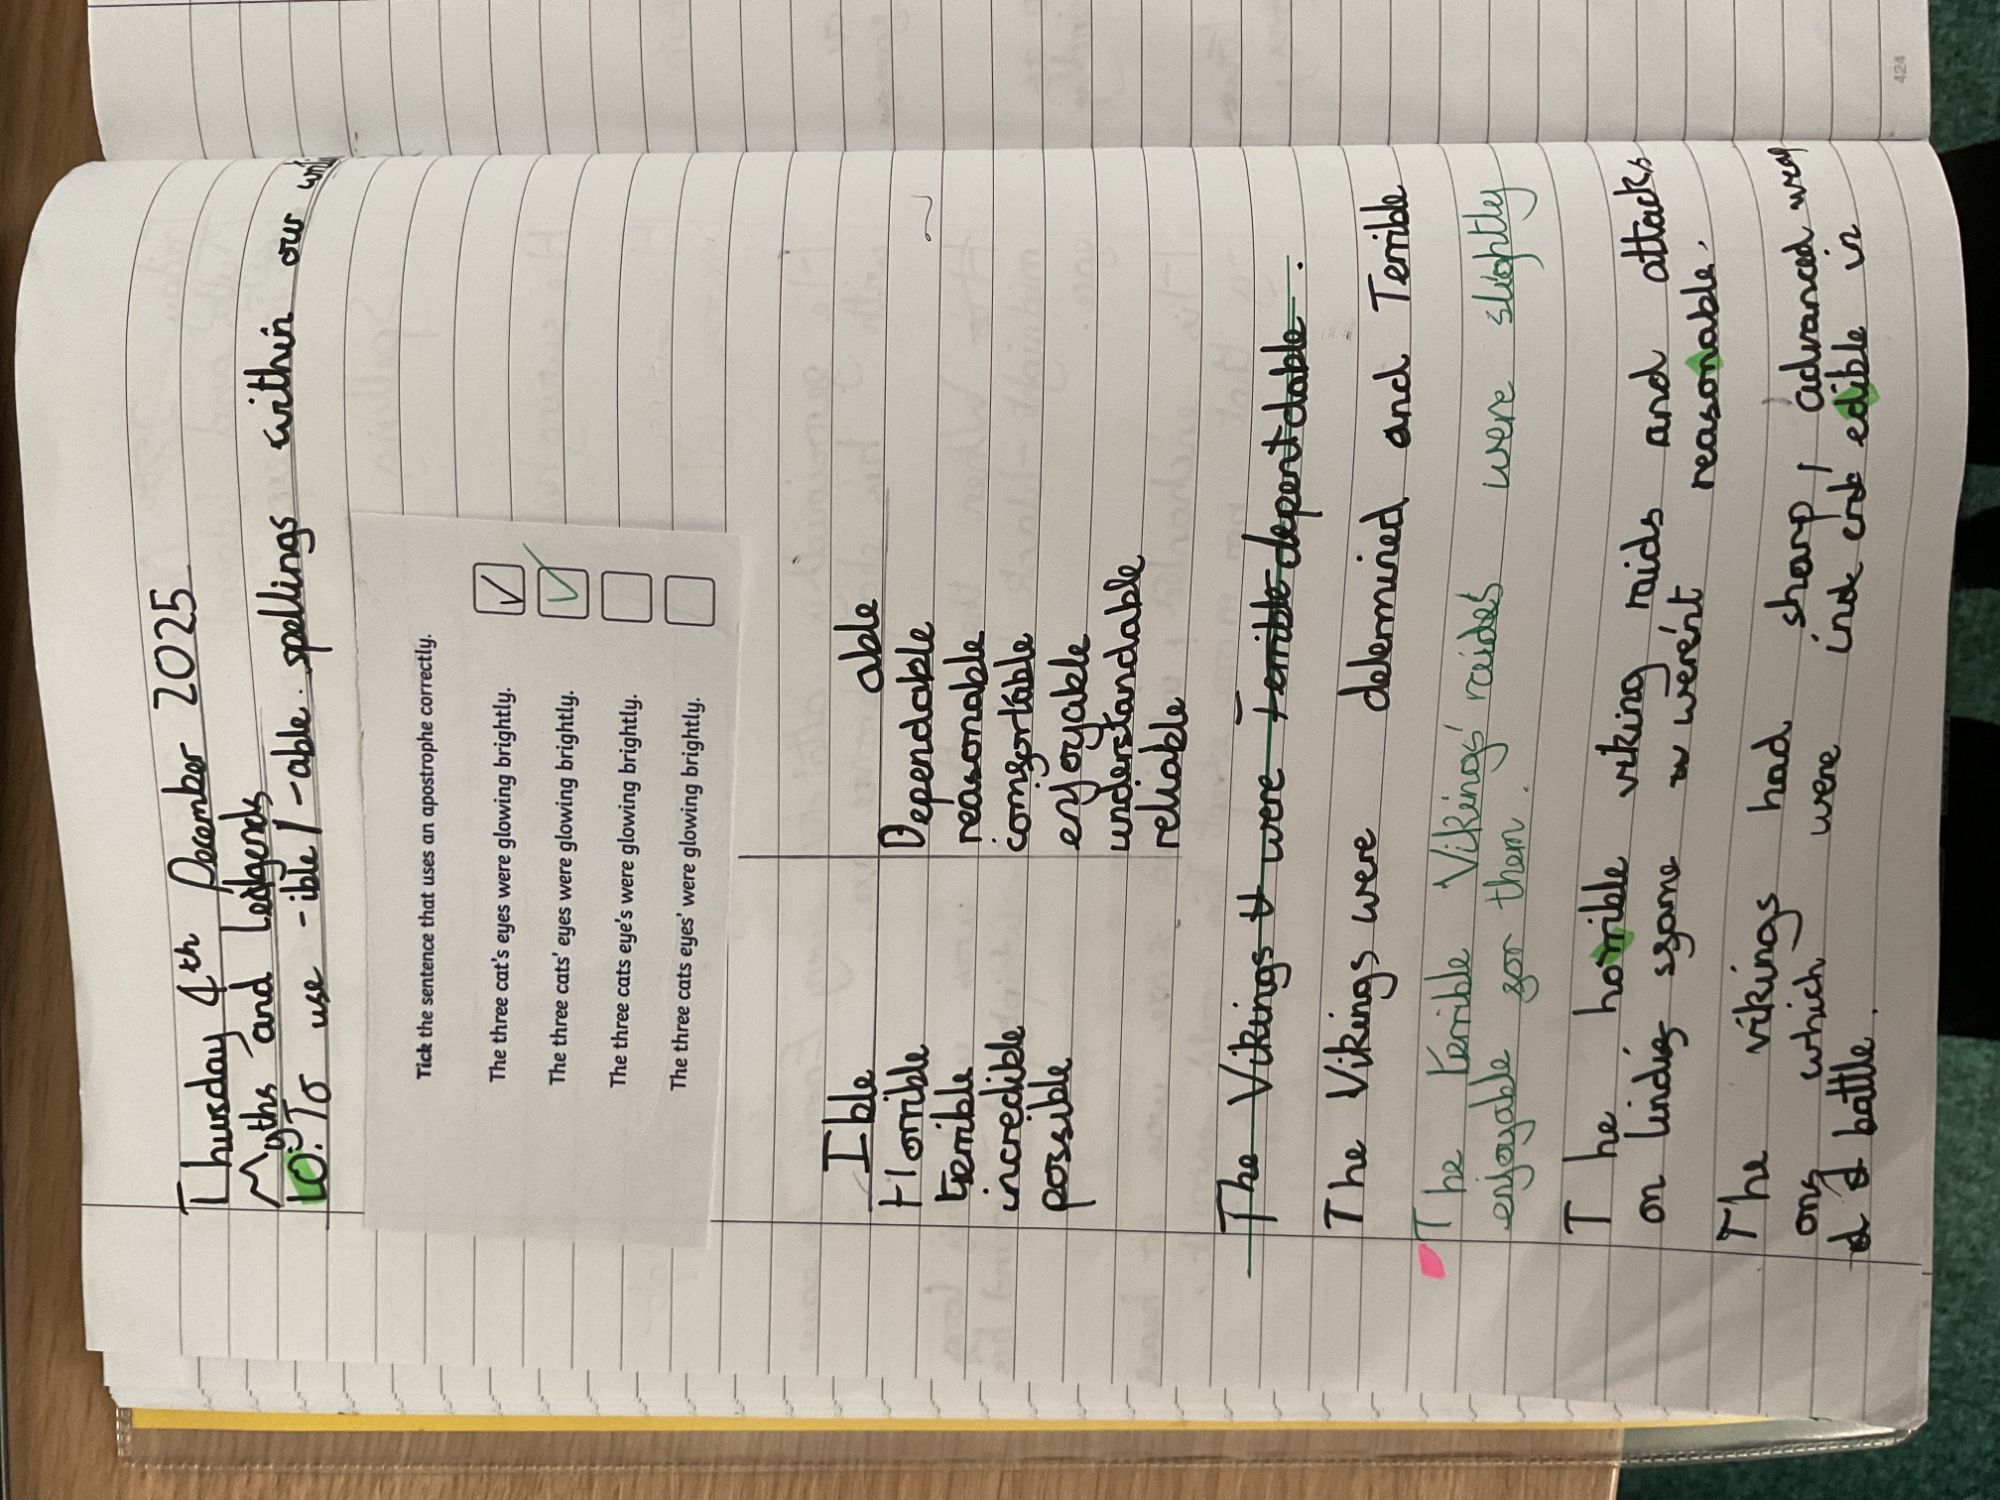 Thursday 4th December 2025
Myths and Ledgends
LO: To use -ible/-able spellings within our
Tick the sentence that uses an apostrophe correctly.
The three cat's eyes were glowing brightly.
The three cats' eyes were glowing brightly.
The three cats eye's were glowing brightly.
The three cats eyes' were glowing brightly.
Ible able
Horrible Dependable
terrible reasonable
incredible comfortable
possible enjoyable
understandable
reliable
The Vikings were depentdable.
The Vikings were determined and Terrible
The terrible Vikings' raides were slightly
enjoyable for them.
The horrible viking raids and attacks
on were'nt reasonable.
The vikings had sharp / advanced
which were edible in
battle.
424